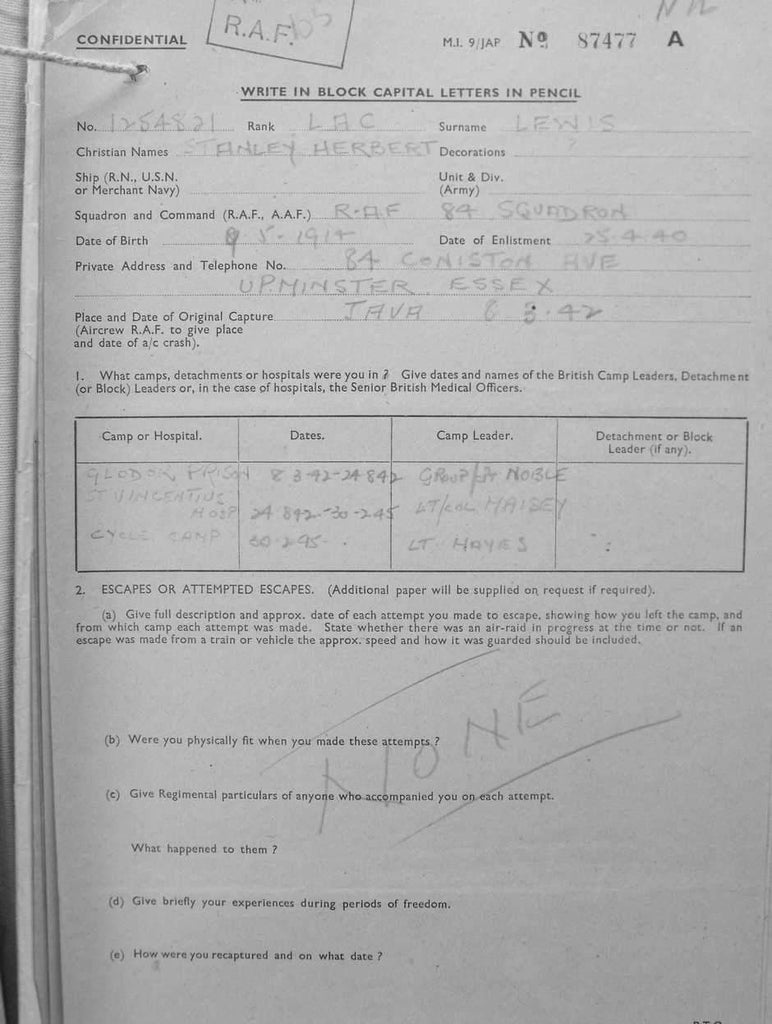 NIL
R.A.F.
CONFIDENTIAL
M.I. 9/JAP No 87477 A
WRITE IN BLOCK CAPITAL LETTERS IN PENCIL
No. 1254821 Rank LAC Surname LEWIS
Christian Names STANLEY HERBERT Decorations ?
Ship (R.N., U.S.N. or Merchant Navy) Unit & Div. (Army)
Squadron and Command (R.A.F., A.A.F.) R.AF 84 SQUADRON
Date of Birth 9.5.1914 Date of Enlistment 25.4.40
Private Address and Telephone No. 84 CONISTON AVE
UPMINSTER ESSEX
Place and Date of Original Capture JAVA 8 3.42
(Aircrew R.A.F. to give place
and date of a/c crash).
1. What camps, detachments or hospitals were you in ? Give dates and names of the British Camp Leaders, Detachment
(or Block) Leaders or, in the case of hospitals, the Senior British Medical Officers.
Camp or Hospital. Dates. Camp Leader. Detachment or Block Leader (if any).
GLODOK PRISON 8 3-42-24 842 GROUP/ NOBLE
ST VINCENTIUS
HOSP 24 842-30-245 LT/COL MAISEY
CYCLE CAMP 30-2.45- . LT HAYES
2. ESCAPES OR ATTEMPTED ESCAPES. (Additional paper will be supplied on request if required).
(a) Give full description and approx. date of each attempt you made to escape, showing how you left the camp, and
from which camp each attempt was made. State whether there was an air-raid in progress at the time or not. If an
escape was made from a train or vehicle the approx. speed and how it was guarded should be included.
NONE
(b) Were you physically fit when you made these attempts ?
(c) Give Regimental particulars of anyone who accompanied you on each attempt.
What happened to them ?
(d) Give briefly your experiences during periods of freedom.
(e) How were you recaptured and on what date ?